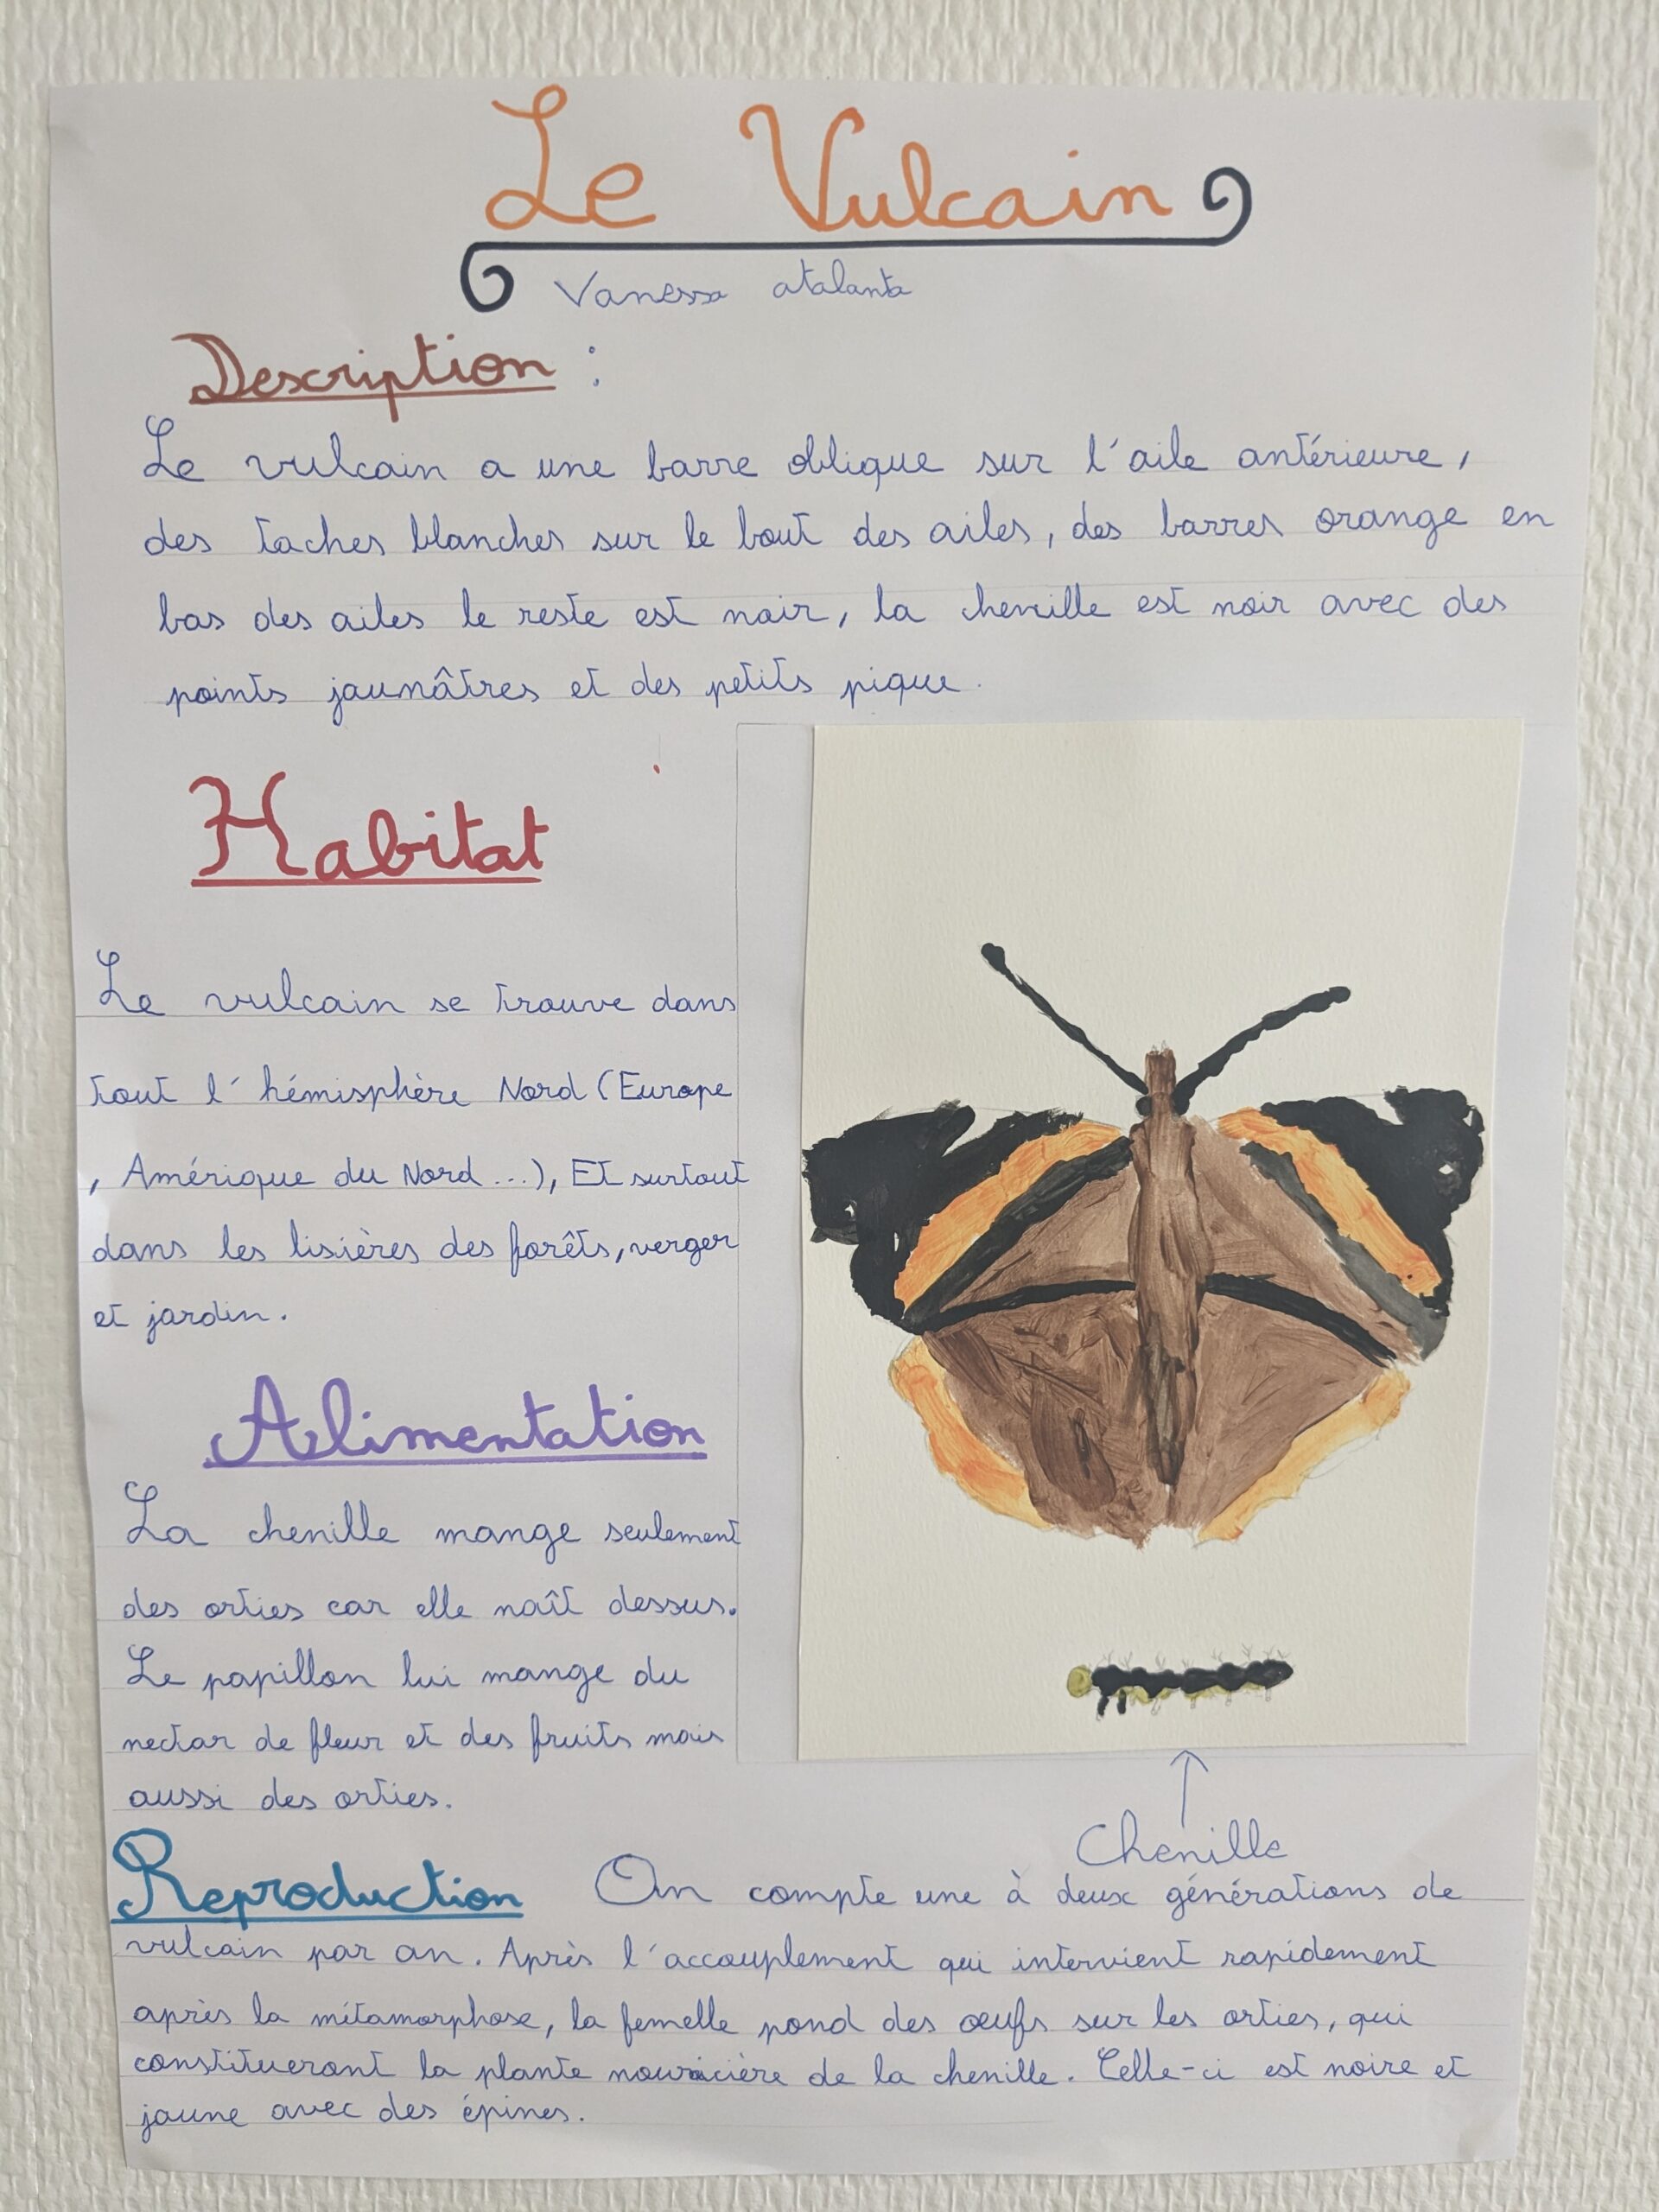 Le Vulcain
Vanessa atalanta
Description :
Le vulcain a une barre oblique sur l'aile antérieure,
des taches blanches sur le bout des ailes, des barres orange en
bas des ailes le reste est noir, la chenille est noir avec des
points jaunâtres et des petits pique.
Habitat
Le vulcain se trouve dans
tout l'hémisphère Nord (Europe
, Amérique du Nord ...), Et surtout
dans les lisières des forêts, verger
et jardin.
Alimentation
La chenille mange seulement
des orties car elle naît dessus.
Le papillon lui mange du
nectar de fleur et des fruits mais
aussi des orties.
Chenille
Reproduction On compte une à deux générations de
vulcain par an. Après l'accouplement qui intervient rapidement
après la métamorphose, la femelle pond des œufs sur les orties, qui
constitueront la plante nourricière de la chenille. Celle-ci est noire et
jaune avec des épines.